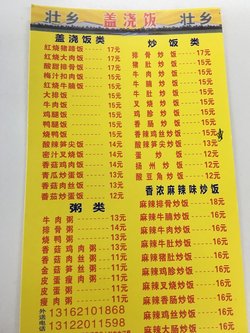 壮乡 盖浇饭 壮乡
盖浇饭类
红烧猪蹄饭 17元
红烧大肉饭 17元
酸甜排骨饭 17元
梅汁扣肉饭 15元
红烧牛腩饭 15元
大排饭 15元
牛肉饭 15元
鸡腿饭 15元
鸭腿饭 15元
烧鸭饭 15元
酸辣笋尖饭 14元
密汁叉烧饭 14元
香菇鸡肉饭 14元
青瓜炒蛋饭 13元
香菇肉丝饭 13元
番茄炒蛋饭 12元
粥类
牛肉粥 13元
排骨粥 13元
烧鸭粥 13元
香菇鸡肉粥 13元
香菇肉丝粥 11元
金菇笋丝粥 11元
皮蛋瘦肉粥 11元
皮蛋粥 11元
瘦肉粥 11元
外送电话
13162101868
13122011598
炒饭类
排骨炒饭 17元
猪肚炒饭 15元
牛肉炒饭 15元
牛腩炒饭 15元
牛肚炒饭 15元
叉烧炒饭 15元
鸡胗炒饭 15元
香肠炒饭 15元
香辣鸡丝炒饭 15元
香辣肉丝炒饭 15元
酸辣笋尖炒饭 13元
蛋炒饭 12元
扬州炒饭 12元
酸豆角炒饭 12元
香浓麻辣味炒饭
麻辣排骨炒饭 18元
麻辣牛腩炒饭 16元
麻辣牛肉炒饭 16元
麻辣牛肚炒饭 16元
麻辣猪肚炒饭 16元
麻辣鸡胗炒饭 16元
麻辣叉烧炒饭 16元
麻辣香肠炒饭 16元
麻辣鸡丝炒饭 16元
麻辣肉丝炒饭 16元
麻辣大肠炒饭